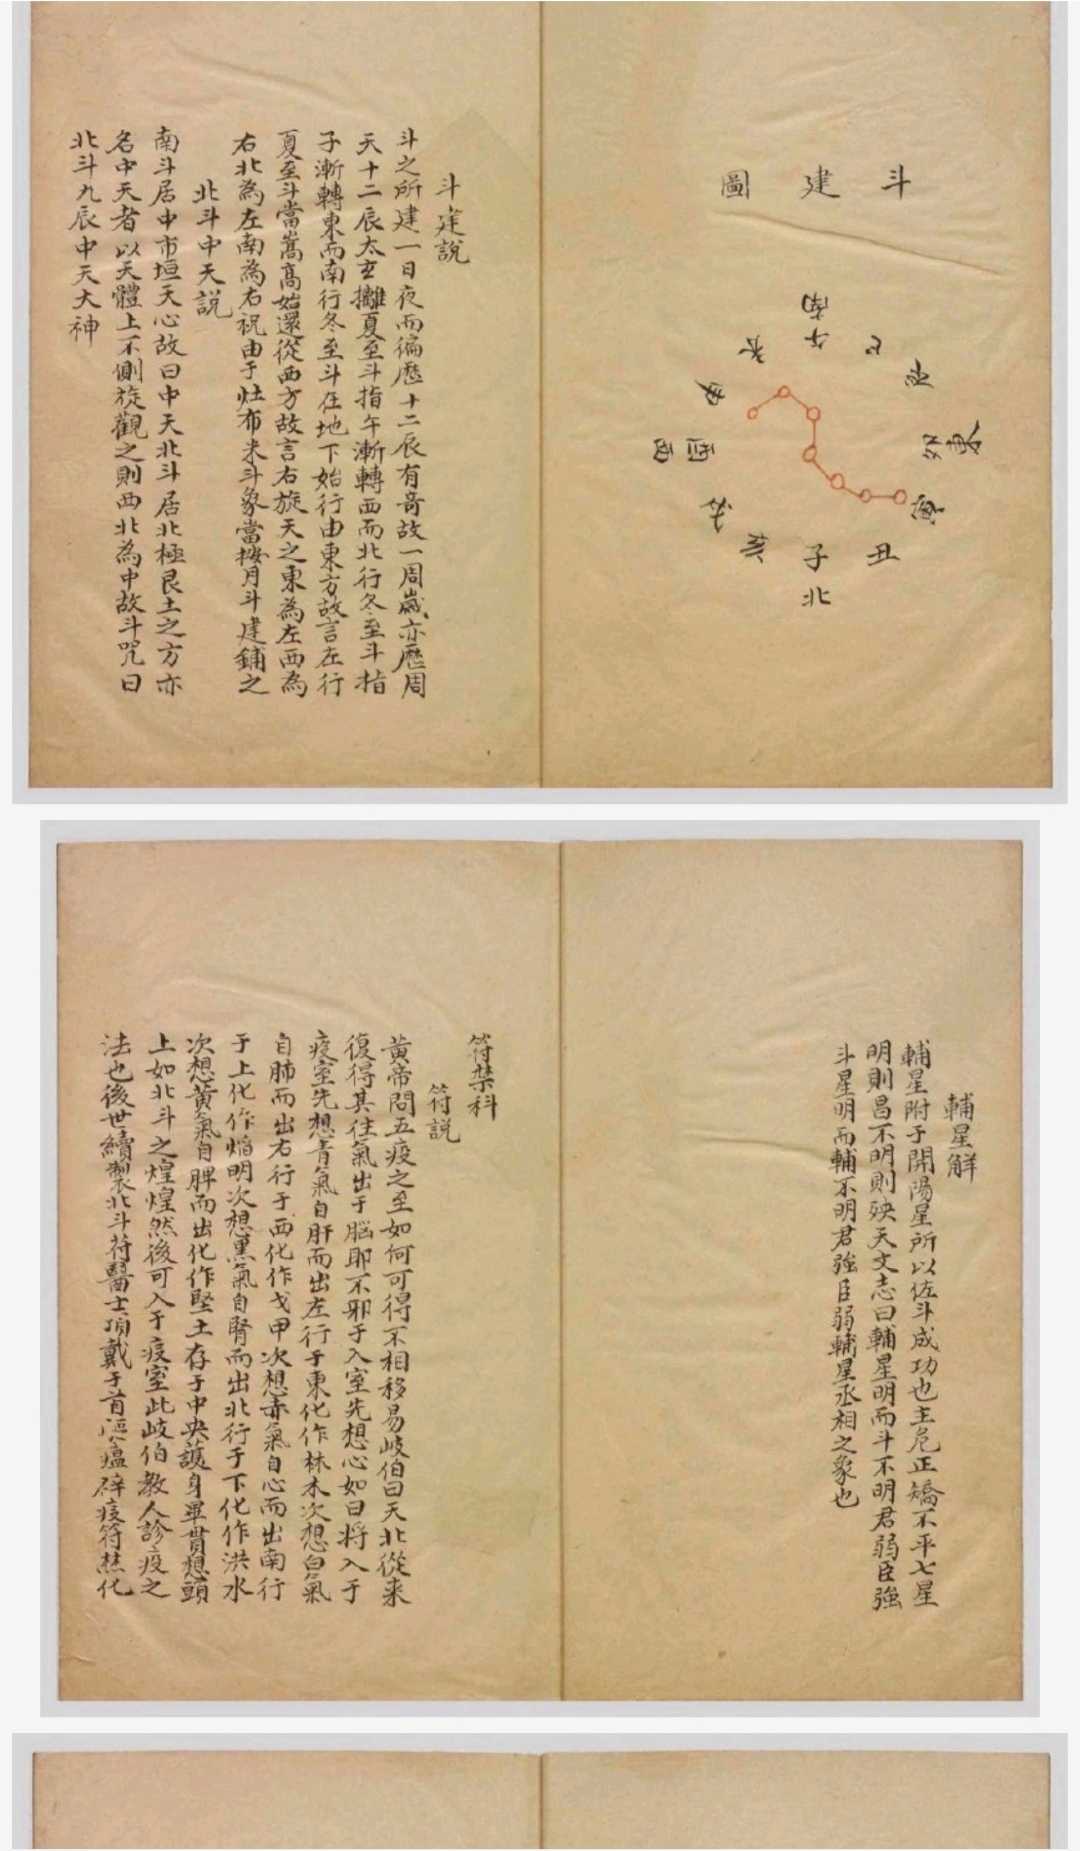 斗建圖
南
午
巳
未
辰
申
卯東
酉西
寅
戌
亥
丑
子
北
斗建說
斗之所建一日夜而徧歷十二辰有奇故一周歲亦歷周
天十二辰太玄攡夏至斗指午漸轉西而北行冬至斗指
子漸轉東而南行冬至斗在地下始行由東方故言左行
夏至斗當嵩高始還從西方故言右旋天之東為左西為
右北為左南為右祝由于灶布米斗象當按月斗建鋪之
北斗中天說
南斗居中市垣天心故曰中天北斗居北極艮土之方亦
名中天者以天體上不側旋觀之則西北為中故斗咒曰
北斗九辰中天大神
輔星解
輔星附于開陽星所以佐斗成功也主危正矯不平七星
明則昌不明則殃天文志曰輔星明而斗不明君弱臣強
斗星明而輔不明君強臣弱輔星丞相之象也
符禁科
符說
黃帝問五疫之至如何可得不相移易岐伯曰天北從來
復得其往氣出于腦耶不邪于入室先想心如日將入于
疫室先想青氣自肝而出左行于東化作林木次想白氣
自肺而出右行于西化作戈甲次想赤氣自心而出南行
于上化作焰明次想黑氣自腎而出北行于下化作洪水
次想黃氣自脾而出化作堅土存于中央護身畢貫想頭
上如北斗之煌煌然後可入于疫室此岐伯教人診疫之
法也後世續製北斗符醫士頂戴于首 瘟辟疫符焚化